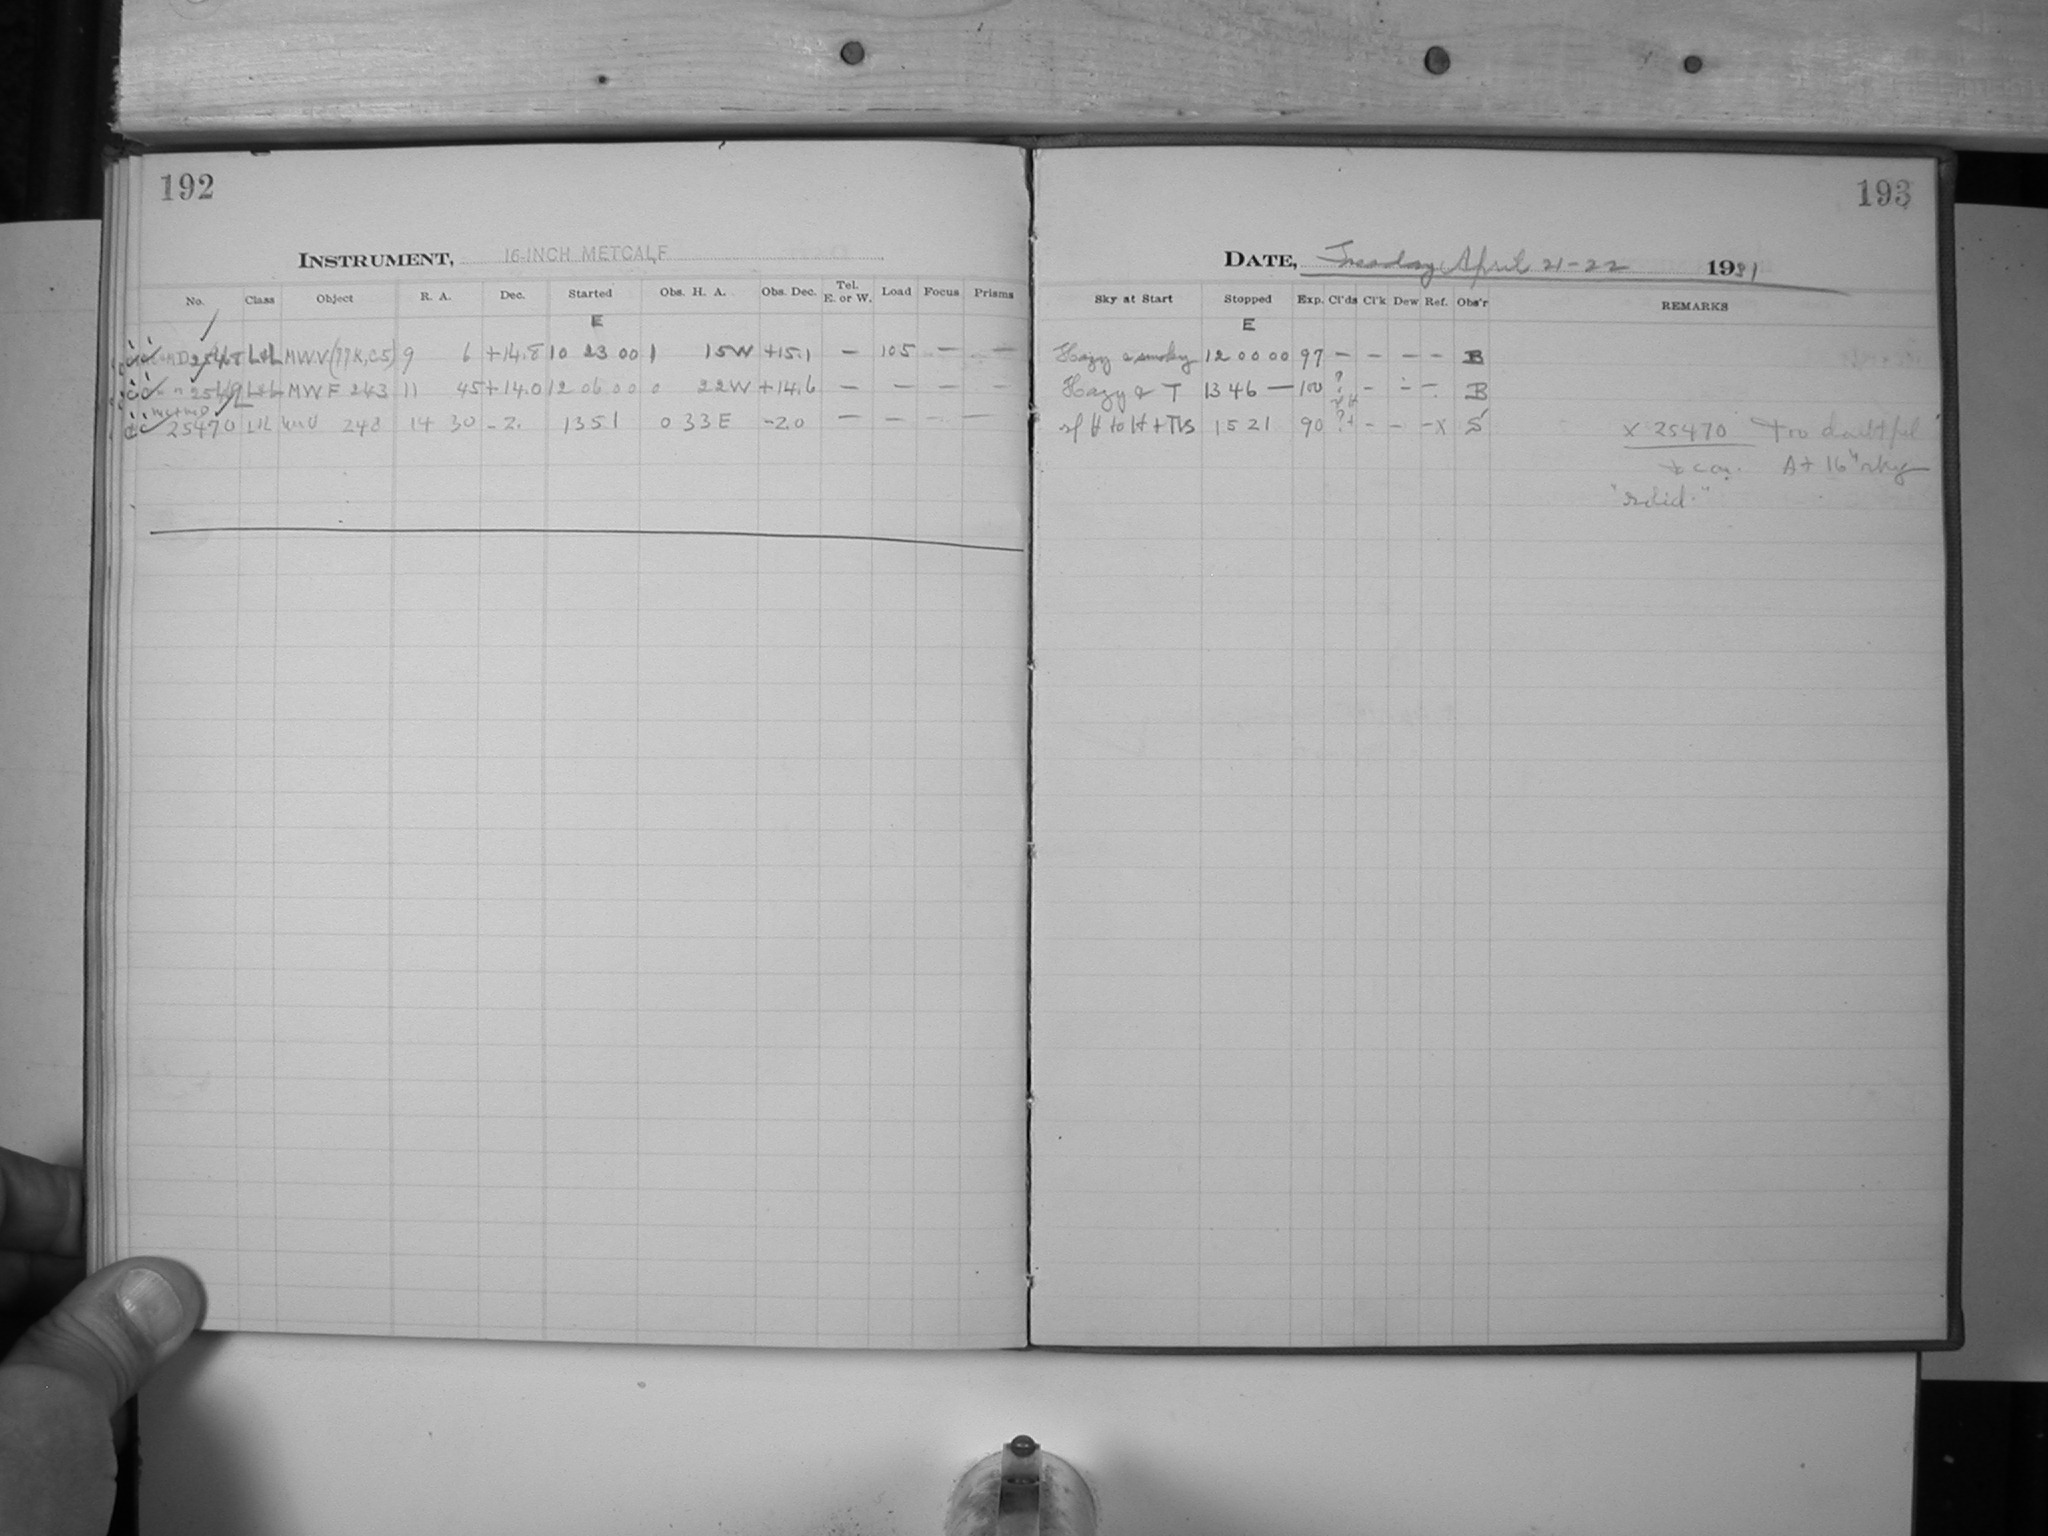 192
INSTRUMENT, 16-INCH METCALF
No. Class Object R. A. Dec. Started Obs. H. A. Obs. Dec. Tel. E. or W. Load Focus Prisms
E
25468 L+L MWV(77K,C5) 9 6 +14.8 10 23 00 1 15W +15.1 — 105 — —
25469 L+L MWF 243 11 45 +14.0 12 06 00 0 22W +14.6 — — — —
25470 L+L 248 14 30 -2. 1351 0 33E -2.0 — — — —
193
DATE, Tuesday April 21-22 1931
Sky at Start Stopped Exp. Cl'ds Cl'k Dew Ref. Obs'r REMARKS
E
Hazy & smoky 12 00 00 97 — — — — B
Hazy & T 13 46 — 100 ? — — — B
H to H + TVS 1521 90 ?+ - - -x S
x 25470 Too doubtful
to A+ 16" sky
"solid."